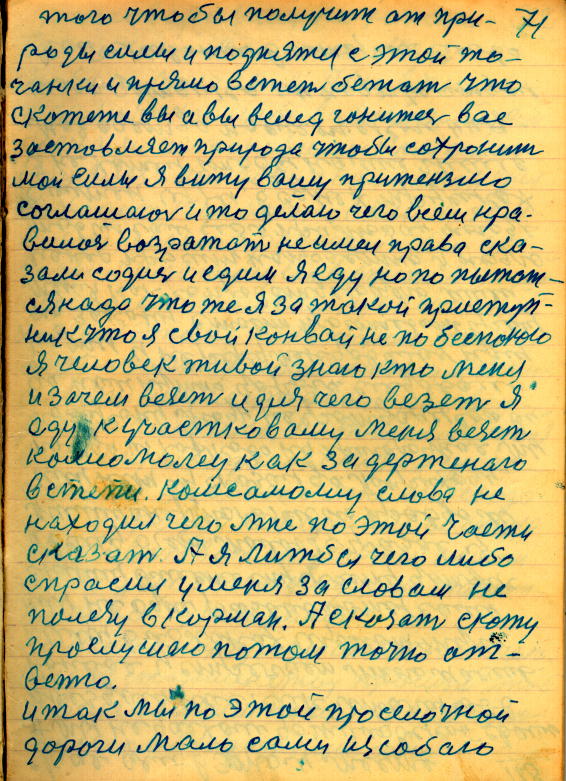 того чтобы получит от при- 71
роды силы и поднятися с этой та-
чанки и прямо встеп бежат что
скожете вы а вы велед гонитеся вас
зоставляет природа чтобы сохронит
мои силы я вижу вашу притензию
соглашаюся и то делаю чего всем нра-
вилося возратат неимел права ска-
зали содися и едим я еду но по пытат-
ся нада что же я за такой приступ-
ник что я свой конвай не по беспокою
я человек живой знаю кто меня
и зачем везет и для чего везет я
еду к участковаму меня везет
комсомолец как за держенаго
в степи. комсамолцу слова не
находил чего мне по этой части
сказат. А я литбы чего либо
спрасил у меня за словам не
полезу в корман. А скозат скожу
прослушаю потом точно от-
вечю.
итак мы по этой проселочной
дороги мало сами и собаю